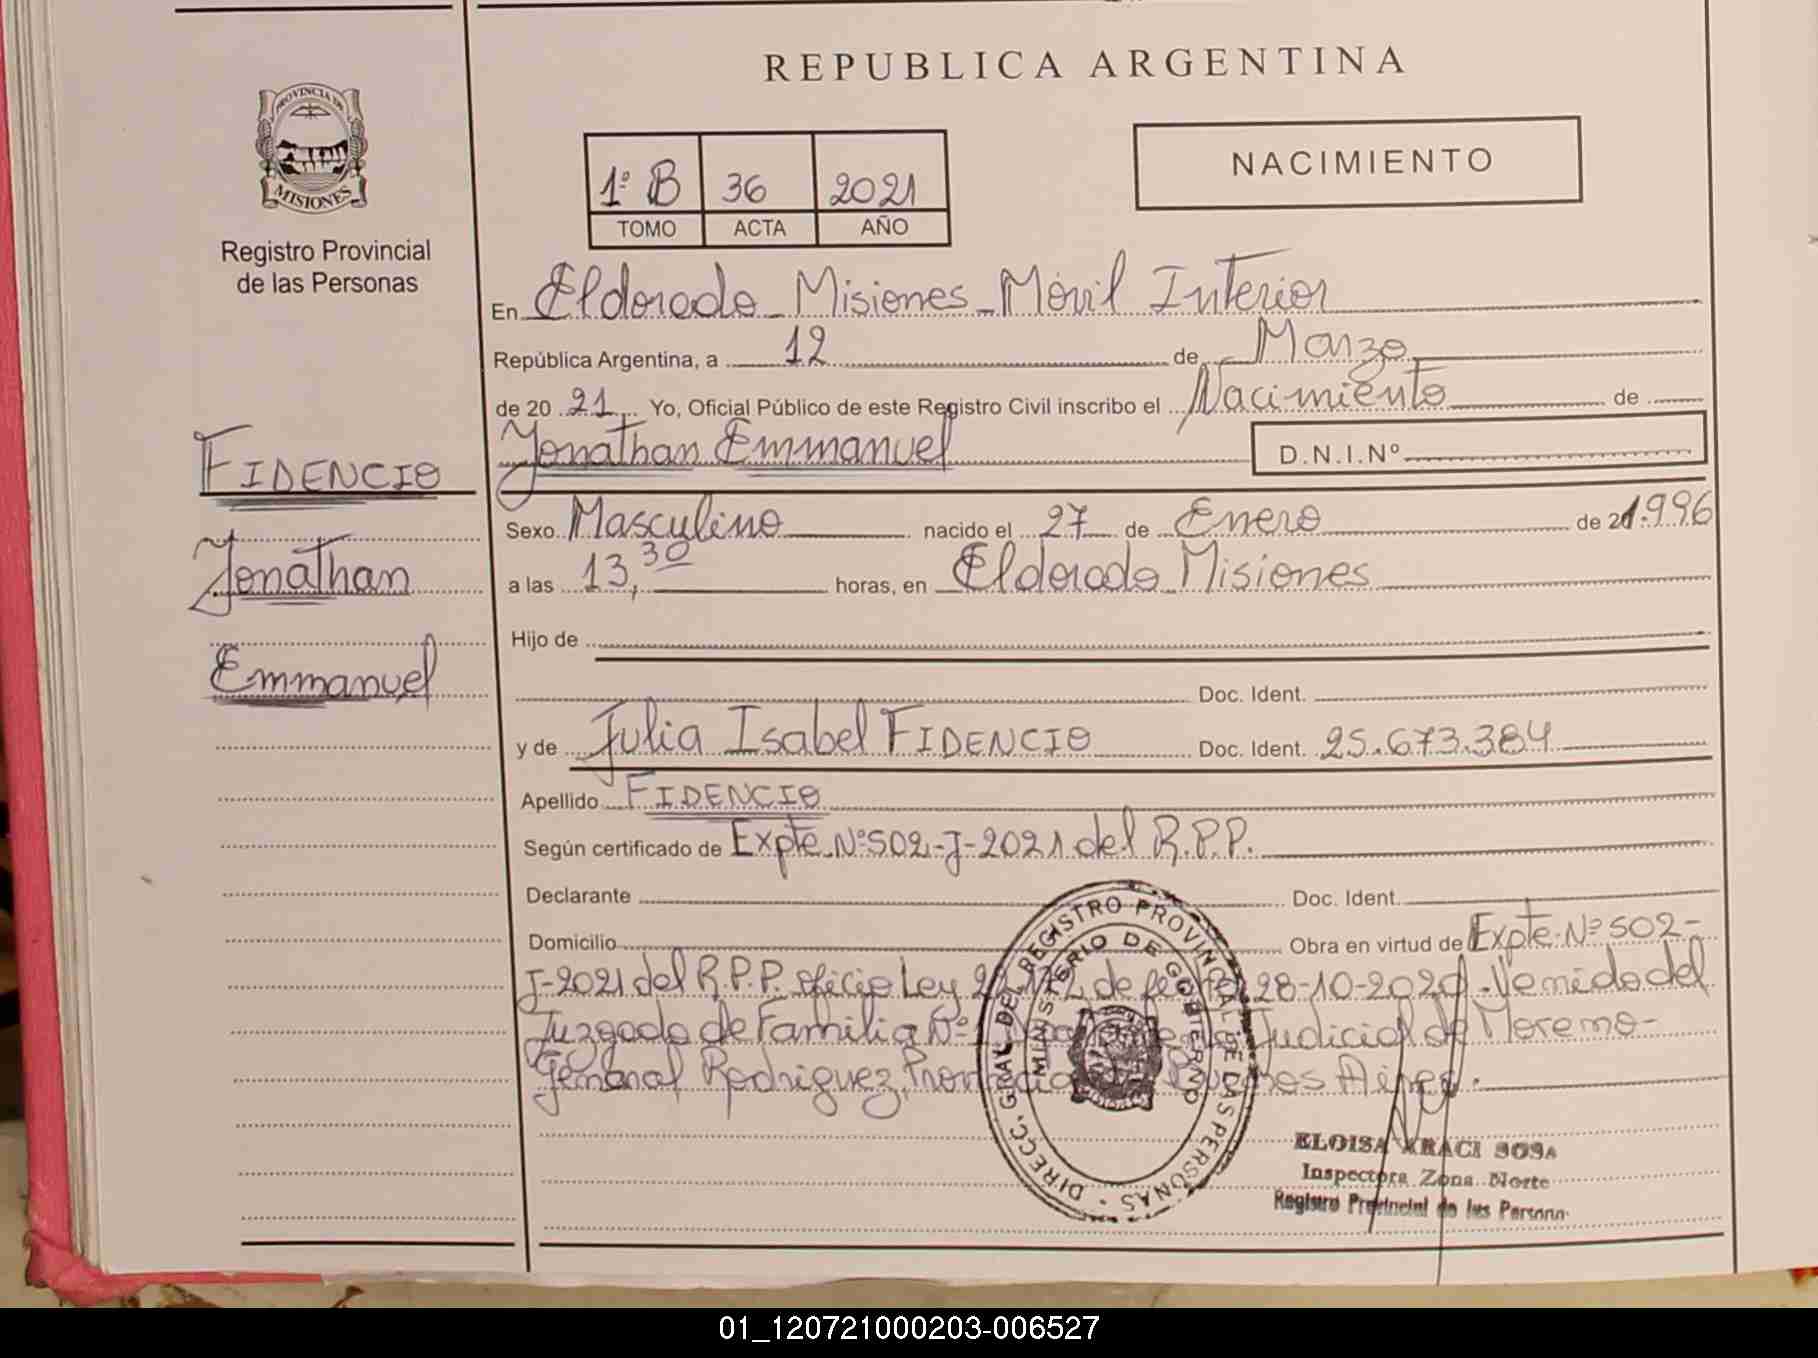 REPUBLICA ARGENTINA
PROVINCIA DE
MISIONES
Registro Provincial
de las Personas
1º B 36 2021
TOMO ACTA AÑO
NACIMIENTO
En Eldorado - Misiones - Móvil Interior
República Argentina, a 12 de Marzo
de 20 21 Yo, Oficial Público de este Registro Civil inscribo el Nacimiento de
Jonathan Emmanuel D.N.I.Nº
FIDENCIO
Jonathan
Emmanuel
Sexo Masculino nacido el 27 de Enero de 1.996
a las 13,30 horas, en Eldorado Misiones
Hijo de
Doc. Ident.
y de Julia Isabel FIDENCIO Doc. Ident. 25.673.384
Apellido FIDENCIO
Según certificado de Expte.Nº502-J-2021 del R.P.P.
Declarante Doc. Ident.
Domicilio Obra en virtud de Expte.Nº502-
J-2021 del R.P.P. oficio Ley de fecha 28-10-2020. Venido del
Juzgado de Familia Nº Judicial de Moreno-
General Rodriguez, Provincia Buenos Aires.
DIRECC. GRAL DEL REGISTRO PROVINCIAL DE LAS PERSONAS
MINISTERIO DE GOBIERNO
ELOISA ARACI SOSA
Inspectora Zona Norte
Registro Provincial de las Personas
01_120721000203-006527